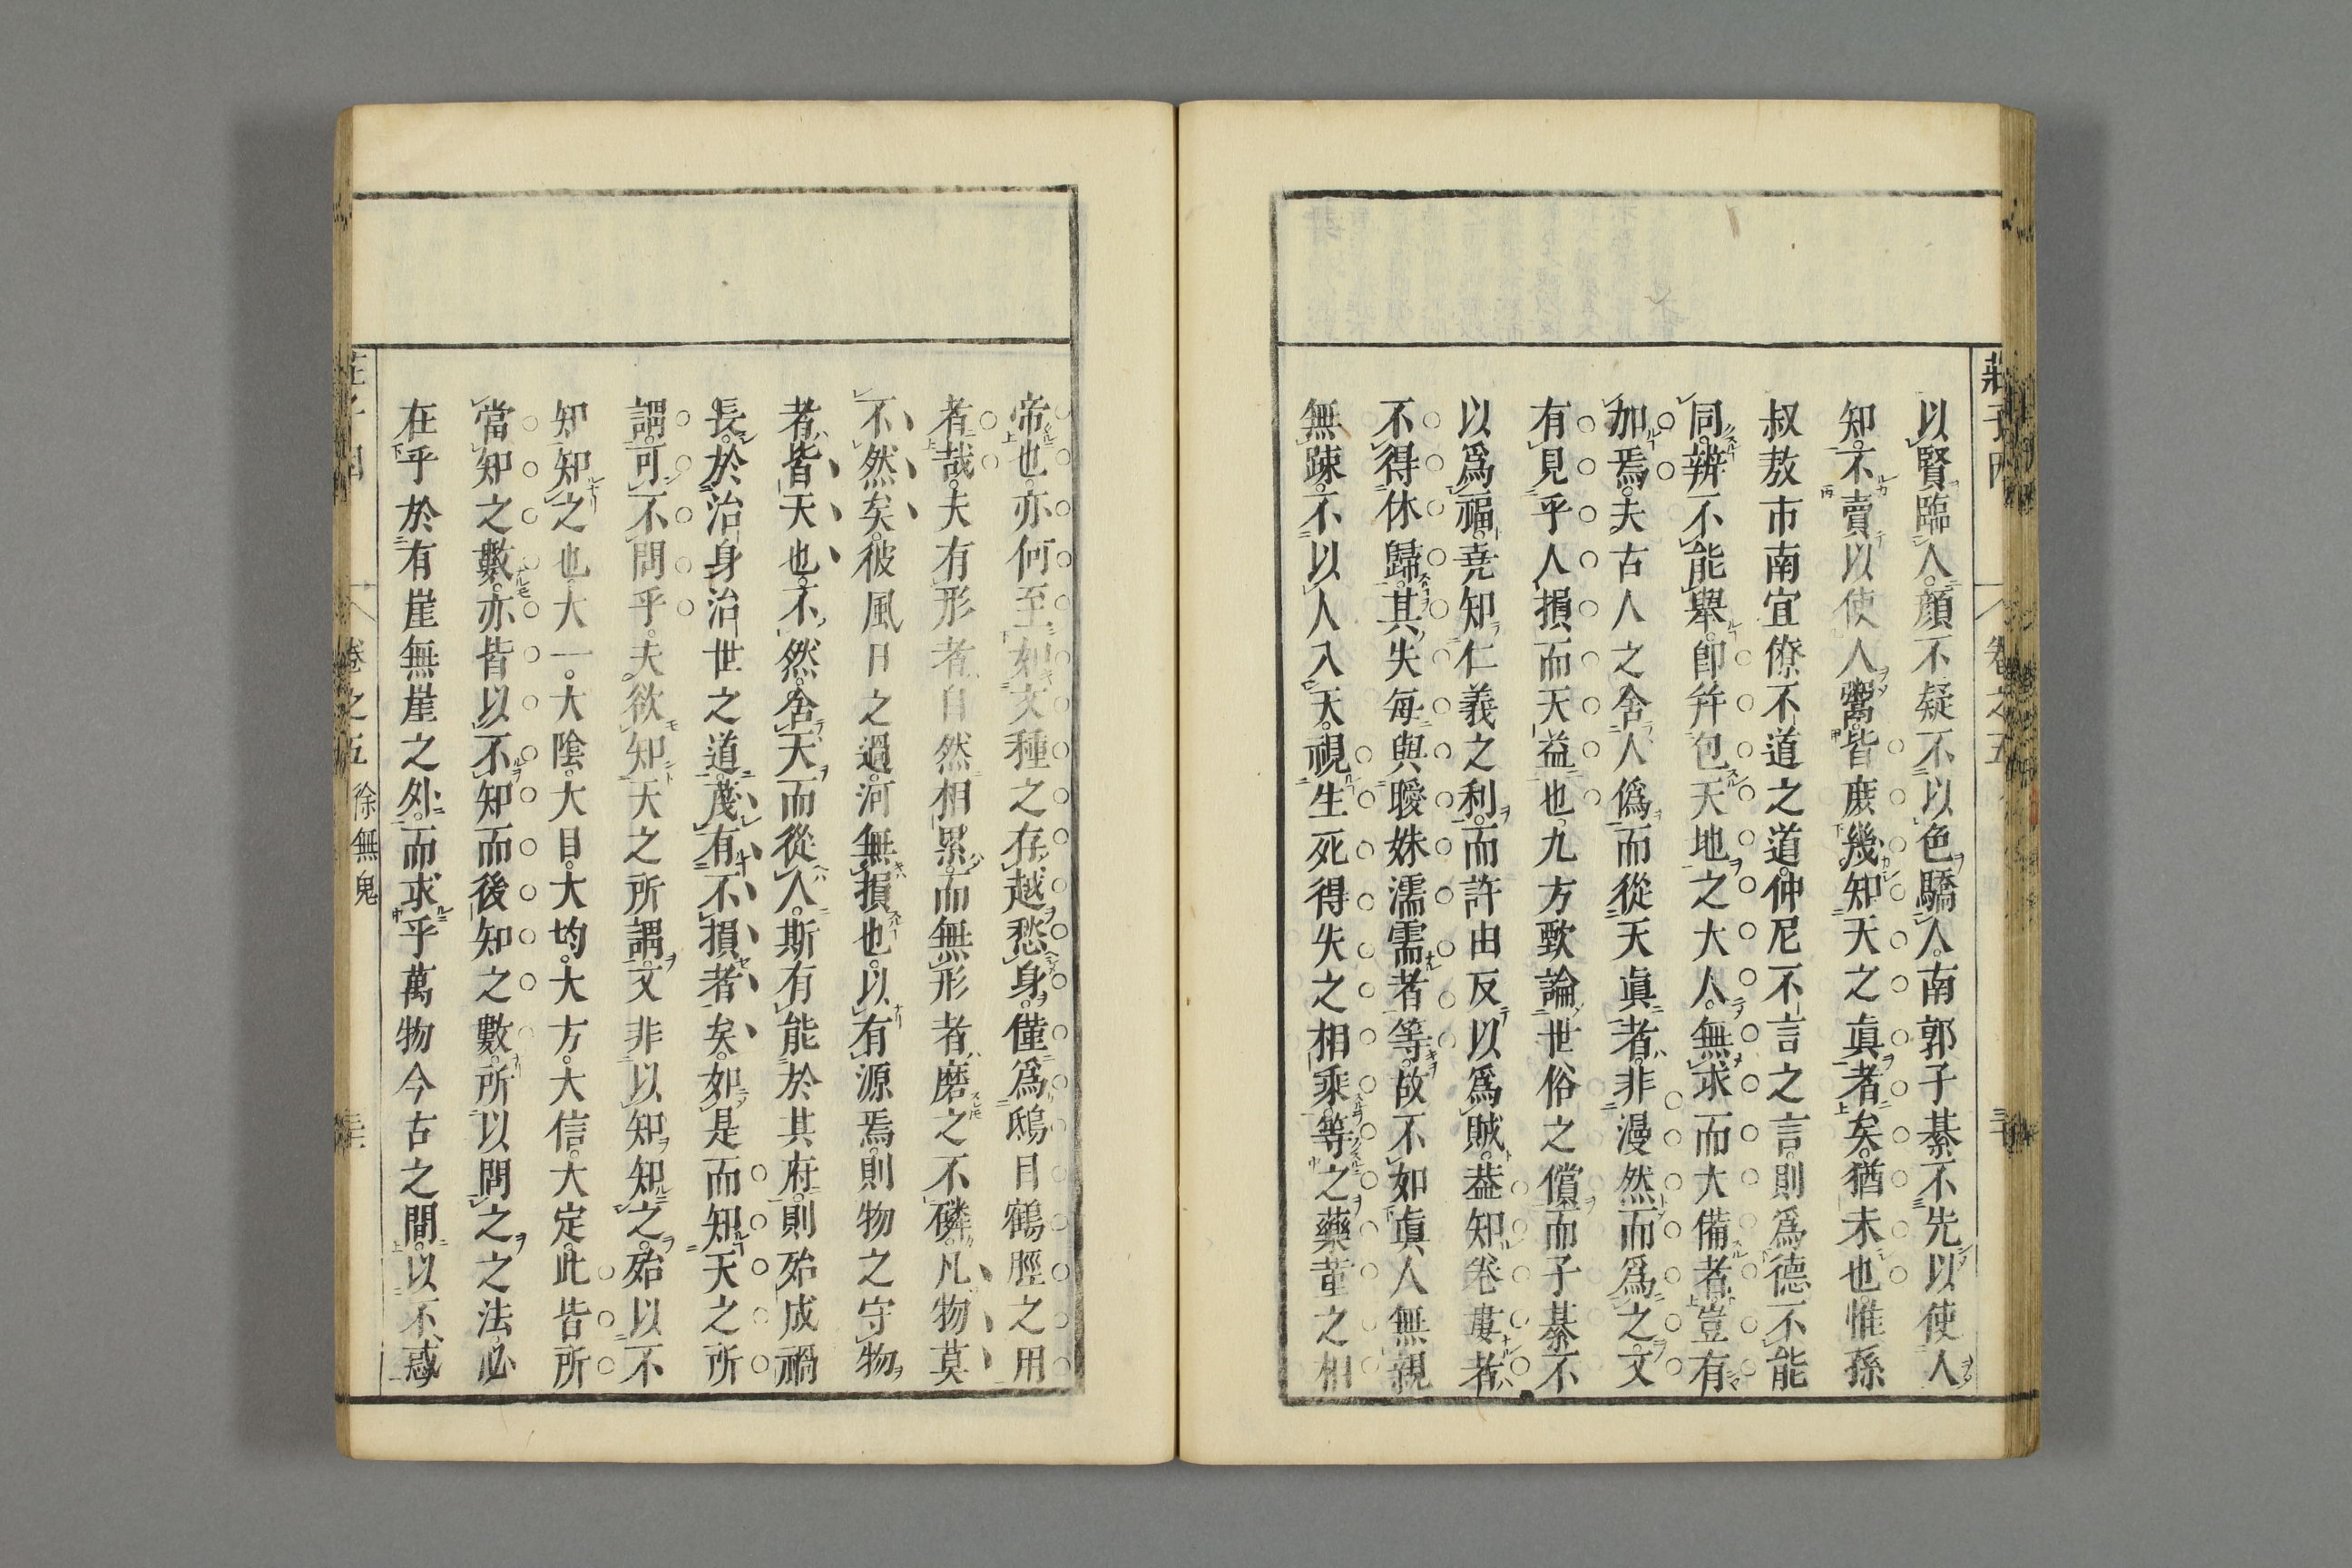 以賢臨人。顏不疑不以色驕人。南郭子綦不先以使人
知。不賣以使人鬻。皆庶幾知天之眞者矣。猶未也。惟孫
叔敖市南宜僚不道之道。仲尼不言之言。則爲德不能
同。辨不能舉。卽幷包天地之大人。無求而大備者。豈有
加焉。夫古人之舍人僞而從天眞者。非漫然而爲之。文
有見乎人損而天益也。九方歅論世俗之償而子綦不
以爲福。堯知仁義之利。而許由反以爲賊。葢知卷婁者
不得休歸。其失每與暖姝濡需者等。故不如眞人無親
無踈。不以人入天。視生死得失之相乘。等之藥菫之相
帝也。亦何至如文種之存越愁身。僅爲鴟目鶴脛之用
者哉。夫有形者自然相累。而無形者磨之不磷。凡物莫
不然矣。彼風日之過河無損也。以有源焉。則物之守物
者皆天也。不然。舍天而從人。斯有能於其府。則殆成禍
長。於治身治世之道。茂有不損者矣。如是而知天之所
謂。可不問乎。夫欲知天之所謂。文非以知知之。殆以不
知知之也。大一。大陰。大目。大均。大方。大信。大定。此皆所
當知之數。亦皆以不知而後知之數。所以問之之法。必
在乎於有崖無崖之外。而求乎萬物今古之間。以不惑
卷之五 徐無鬼